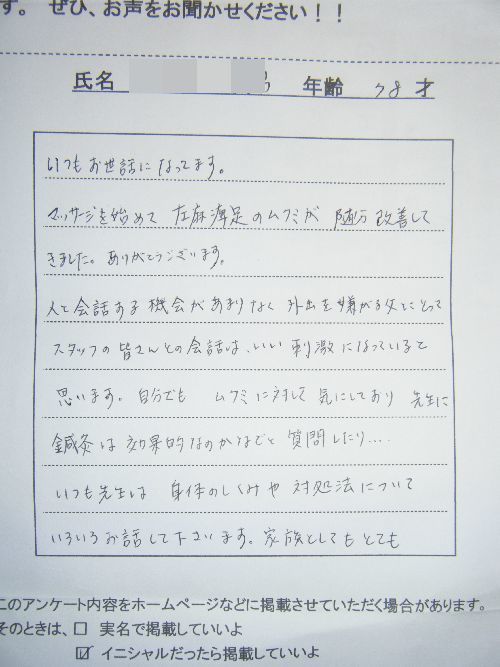 す。 ぜひ、お声をお聞かせください！！
氏名 年齢 78 才
いつもお世話になってます。
マッサージを始めて 左麻痺足のムクミが 随分 改善して
きました。ありがとうございます。
人と会話する機会があまりなく 外出を嫌がる父にとって
スタッフの皆さんとの会話は、いい刺激になっていると
思います。自分でも ムクミに対して気にしており 先生に
鍼灸は効果的なのかなど質問したり....
いつも先生は 身体のしくみや 対処法について
いろいろお話して下さいます。家族としてもとても
このアンケート内容をホームページなどに掲載させていただく場合があります。
そのときは、□ 実名で掲載していいよ
☑ イニシャルだったら掲載していいよ